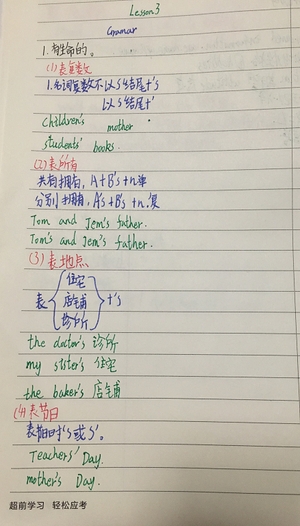 Lesson 3
Gramar
1.有生命的。
(1)表复数
1.名词复数不以s结尾+'s
以s结尾+'
Children's mother
students' books.
(2)表所有
共有拥有,A+B's+n单
分别拥有,A's+B's+n.复
Tom and Jem's father.
Tom's and Jem's father.
(3)表地点
住宅
表 店铺 +'s
诊所
the doctor's 诊所
my sister's 住宅
the baker's 店铺
(4)表节日
表节日时's或s'。
Teachers' Day.
mother's Day.
超前学习 轻松应考